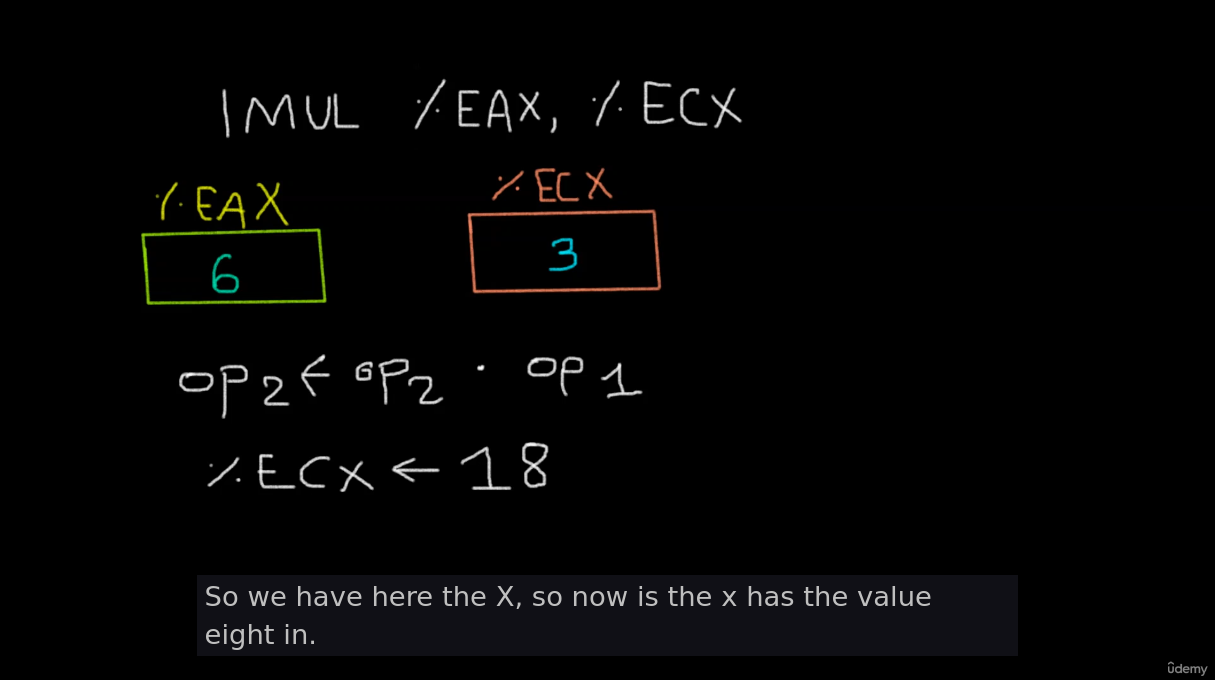 IMUL %EAX, %ECX
%EAX %ECX
6 3
OP2 ← OP2 · OP1
%ECX ← 18
So we have here the X, so now is the x has the value
eight in.
ûdemy